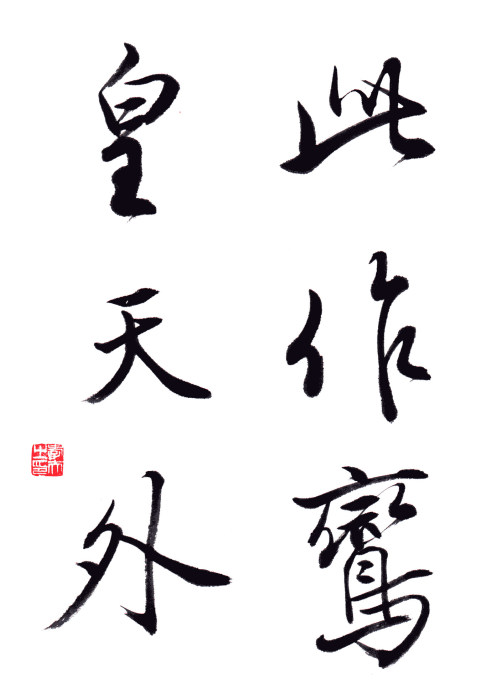 此作鸞
皇天外